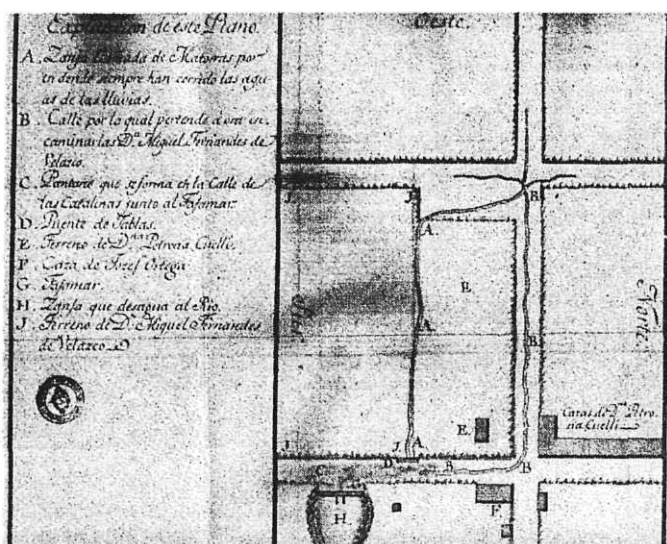 Explicacion de este Plano.
A. Zanja llamada de Matorras por
en donde siempre han corrido las agu-
as de las lluvias.
B. Calle por lo qual pertende aora en-
caminarlas Dn. Miguel Fernandes de
Velazco.
C. Pantano que se forma en la Calle de
las Catalinas junto al Tajamar
D. Puente de Tablas.
E. Terreno de Dña. Petrona Cuelli.
F. Caza de Jozef Ortega
G. Tajamar.
H. Zanja que desagua al Rio.
J. Terreno de Dn. Miguel Fernandes
de Velazco
Oeste.
J.
J.
B.
A.
E.
A.
B.
Norte
Cazas de Da. Petro-
na Cuelli
E.
J.
J. A.
D.
B.
B
C.
G.
F.
H
H.